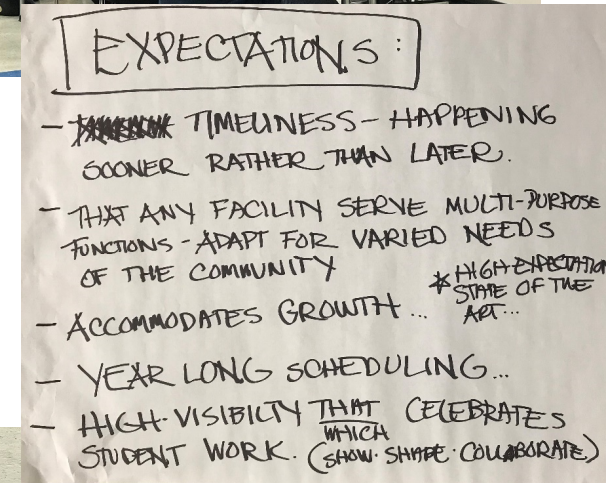 EXPECTATIONS:
- TIMELINESS - HAPPENING
SOONER RATHER THAN LATER.
- THAT ANY FACILITY SERVE MULTI-PURPOSE
FUNCTIONS - ADAPT FOR VARIED NEEDS
OF THE COMMUNITY
* HIGH EXPECTATION
STATE OF THE
ART...
- ACCOMMODATES GROWTH...
- YEAR LONG SCHEDULING...
- HIGH-VISIBILTY THAT CELEBRATES
WHICH
STUDENT WORK. (SHOW · SHARE · COLLABORATE)